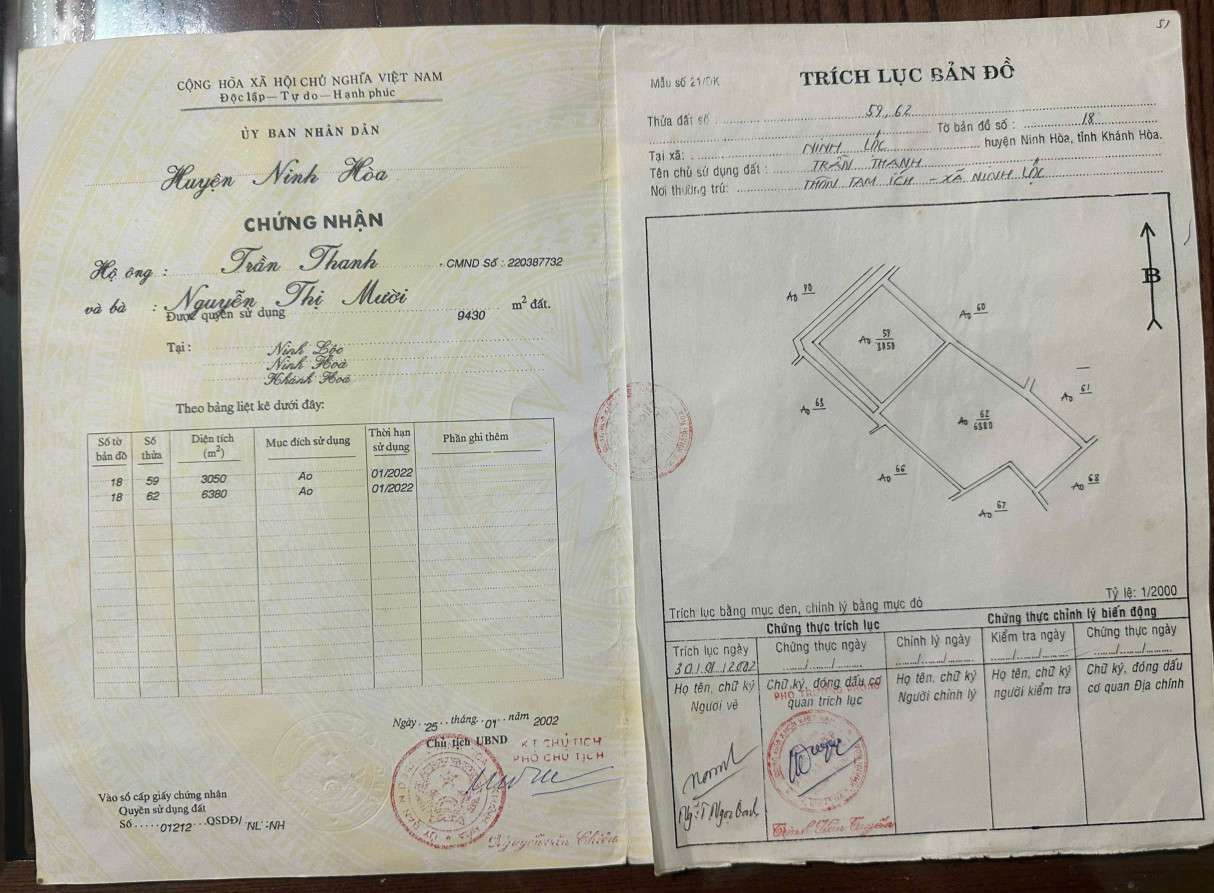 CỘNG HÒA XÃ HỘI CHỦ NGHĨA VIỆT NAM
Độc lập — Tự do — Hạnh phúc
ỦY BAN NHÂN DÂN
Huyện Ninh Hòa
CHỨNG NHẬN
Hộ ông : Trần Thanh - CMND Số : 220387732
và bà : Nguyễn Thị Mười
Được quyền sử dụng 9430 m² đất.
Tại : Ninh Lộc
Ninh Hoà
Khánh Hoà
Theo bảng liệt kê dưới đây:
Số tờ bản đồ Số thửa Diện tích (m²) Mục đích sử dụng Thời hạn sử dụng Phần ghi thêm
18 59 3050 Ao 01/2022
18 62 6380 Ao 01/2022
Ngày 25 tháng 01 năm 2002
Chủ tịch UBND
KT CHỦ TỊCH
PHÓ CHỦ TỊCH
Vào sổ cấp giấy chứng nhận
Quyền sử dụng đất
Số 01212 QSDĐ/ NL-NH
51
Mẫu số 21/ĐK
TRÍCH LỤC BẢN ĐỒ
Thửa đất số : 59, 62
Tờ bản đồ số : 18
Tại xã: NINH LỘC huyện Ninh Hòa, tỉnh Khánh Hòa.
Tên chủ sử dụng đất : TRẦN THANH
Nơi thường trú: THÔN TAM ÍCH - XÃ NINH LỘC
B
Ao 90
Ao 60
Ao 59 3050
Ao 61
Ao 63
Ao 62 6380
Ao 66
Ao 68
Ao 67
Tỷ lệ: 1/2000
Trích lục bằng mục đen, chỉnh lý bằng mực đỏ
Chứng thực trích lục Chứng thực chỉnh lý biến động
Trích lục ngày Chứng thực ngày Chỉnh lý ngày Kiểm tra ngày Chứng thực ngày
30/01/2002 ....../....../...... ....../....../...... ....../....../...... ....../....../......
Họ tên, chữ ký Người vẽ
Chữ ký, đóng dấu cơ quan trích lục
Họ tên, chữ ký Người chỉnh lý
Họ tên, chữ ký người kiểm tra
Chữ ký, đóng dấu cơ quan Địa chính